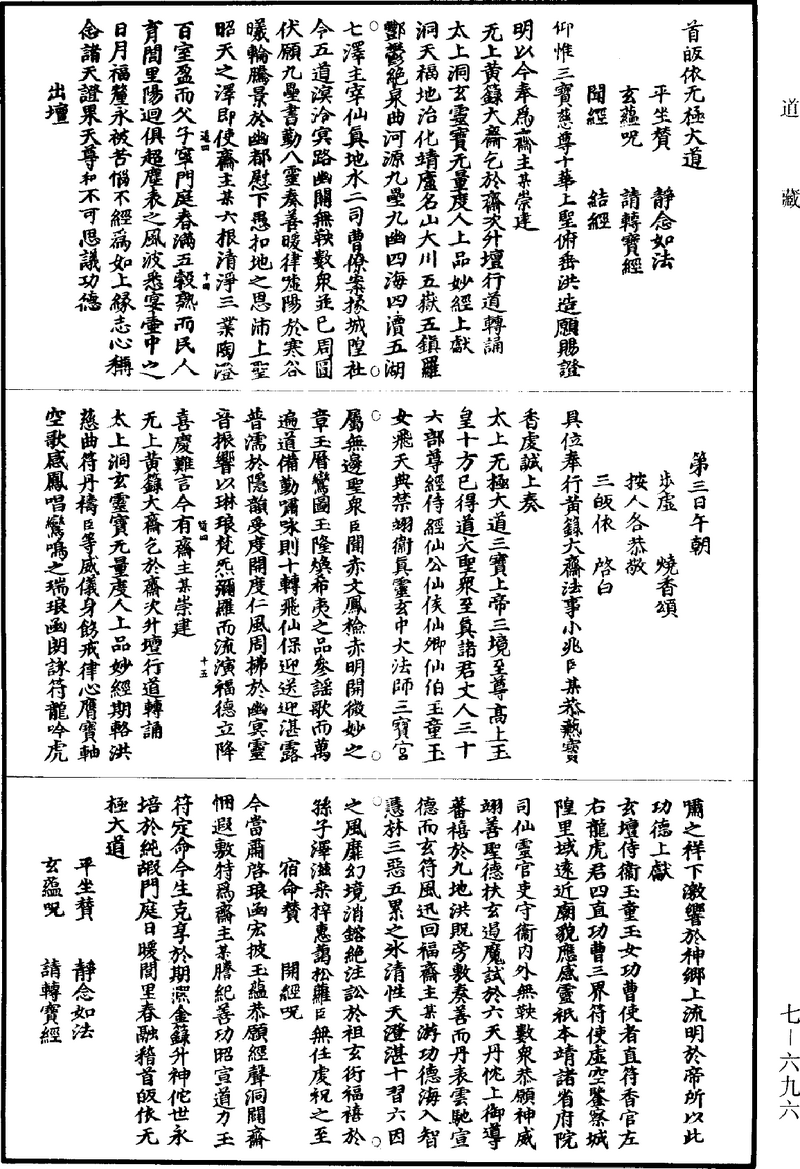 道藏
首皈依无極大道
平坐賛　靜念如法
玄蘊呪　請轉寶經
開經　結經
仰惟三寶慈尊十華上聖俯垂洪造願賜證
明以今奉爲齋主某崇建
无上黃籙大齋乞於齋次升壇行道轉誦
太上洞玄靈寶无量度人上品妙經上獻
洞天福地治化靖廬名山大川五嶽五鎮羅
酆鬱絶泉曲河源九壘九幽四海四瀆五湖
七澤主宰仙眞地水二司曹僚案掾城隍社
令五道溟泠冥路幽關無鞅數衆並已周圓
伏願九壘書勤八靈奏善暖律噓陽於寒谷
曦輪騰景於幽都慰下愚扣地之恩沛上聖
昭天之澤即使齋主某六根清淨三業陶澄
百室盈而父子寧門庭春滿五穀熟而民人
育閭里陽迴俱超塵表之風波悉宴壷中之
日月福釐永被苦惱不經爲如上緣志心稱
念諸天證果天尊和不可思議功德
出壇
第三日午朝
步虛　燒香頌
按人各恭敬
三皈依　啓白
具位奉行黃籙大齋法事小兆臣某恭爇寶
香虔誠上奏
太上无極大道三寶上帝三境至尊高上玉
皇十方已得道大聖衆至眞諸君丈人三十
六部尊經侍經仙公仙侯仙卿仙伯玉童玉
女飛天典禁翊衞眞靈玄中大法師三寶宮
屬無邊聖衆臣聞赤文鳳檢赤明開微妙之
章玉曆鸞圖玉隆煥希夷之品參謠歌而萬
遍道備勤嘯咏則十轉飛仙保迎送迎湛露
普濡於隱韻受度開度仁風周拂於幽冥靈
音振響以琳琅梵炁彌羅而流演福德立降
喜慶難言今有齋主某崇建
无上黃籙大齋乞於齋次升壇行道轉誦
太上洞玄靈寶无量度人上品妙經期輅洪
慈曲符丹禱臣等威儀身飭戒律心膺寶軸
空歌感鳳唱鸞鳴之瑞琅函朗詠符龍吟虎
嘯之祥下激響於神鄉上流明於帝所以此
功德上獻
玄壇侍衞玉童玉女功曹使者直符香官左
右龍虎君四直功曹三界符使虛空鑒察城
隍里域遠近廟貌應感靈祇本靖諸省府院
司仙靈官吏守衞內外無鞅數衆恭願神威
翊善聖德扶玄遏魔試於六天丹忱上御導
蕃禧於九地洪貺旁敷奏善而丹表雲馳宣
德而玄符風迅回福齋主某游功德海入智
慧林三惡五累之氷清性天澄湛十習六因
之風靡幻境消鎔絶注訟於祖玄衍福禧於
孫子澤滋桑梓惠藹松蘿臣無任虔祝之至
宿命賛　開經呪
今當肅啓琅函宏披玉蘊恭願經聲洞闢齋
悃遐敷特爲齋主某謄紀善功昭宣道力玉
符定命今生克享於期頤金籙升神佗世永
培於純嘏門庭日暖閭里春融稽首皈依无
極大道
平坐賛　靜念如法
玄蘊呪　請轉寶經
七—六九六